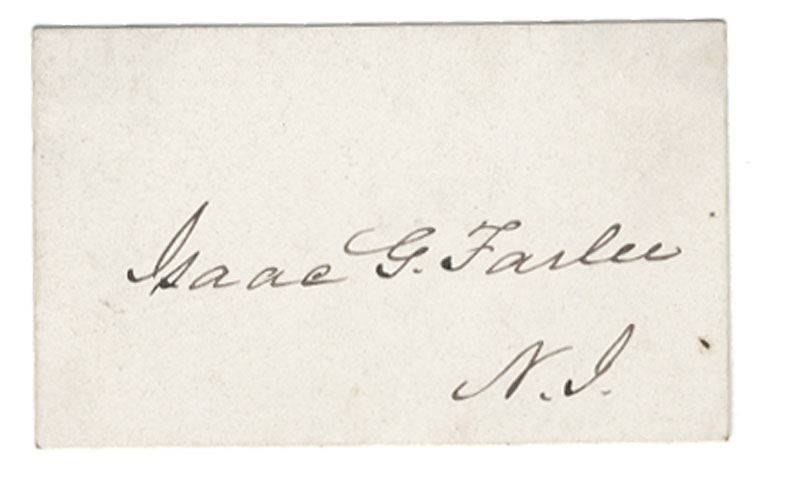 Isaac G. Farlee
N.J.